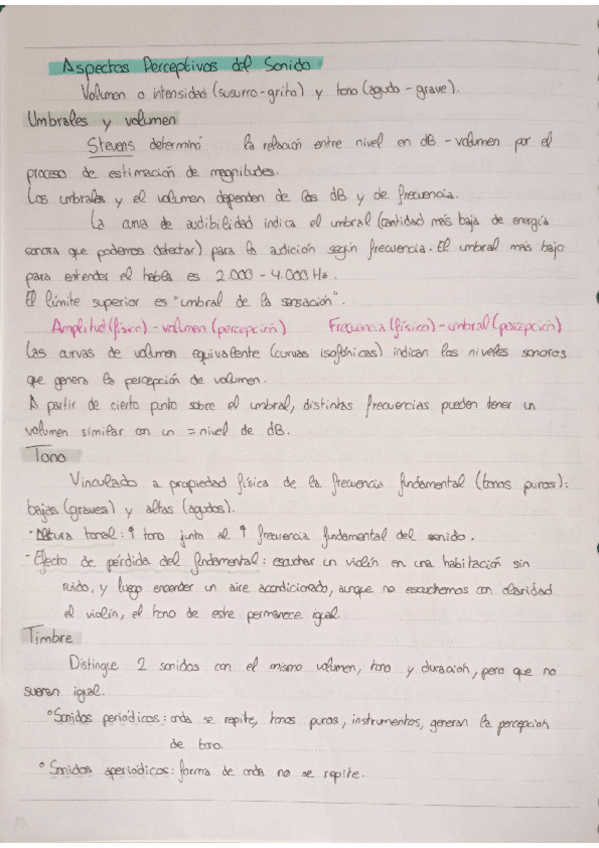 Aspectos Perceptivos del Sonido.
Volumen o intensidad (susurro-grito) y tono (agudo - grave).
Umbrales y volumen
Stevens determinó la relación entre nivel en dB - volumen por el
proceso de estimación de magnitudes.
Los umbrales y el volumen dependen de los dB y de frecuencia.
La curva de audibilidad indica el umbral (cantidad más baja de energía
sonora que podemos detectar) para la audición según frecuencia. El umbral más bajo
para entender el habla es 2.000 - 4.000 Hz.
El límite superior es "umbral de la sensación".
Amplitud (físico) - volumen (percepción) Frecuencia (físico) - umbral (percepción)
Las curvas de volumen equivalente (curvas isofónicas) indican los niveles sonoros
que genera la percepción de volumen.
A partir de cierto punto sobre el umbral, distintas frecuencias pueden tener un
volumen similar con un = nivel de dB.
Tono
Vinculado a propiedad física de la frecuencia fundamental (tonos puros):
bajas (graves) y altas (agudos).
- Altura tonal: ↑ tono junto al ↑ frecuencia fundamental del sonido.
- Efecto de pérdida del fundamental: escuchar un violín en una habitación sin
ruido, y luego encender un aire acondicionado, aunque no escuchemos con claridad
el violín, el tono de este permanece igual.
Timbre
Distingue 2 sonidos con el mismo volumen, tono y duración, pero que no
suenan igual.
° Sonidos periódicos: onda se repite, tonos puros, instrumentos, generan la percepción
de tono.
° Sonidos aperiódicos: forma de onda no se repite.